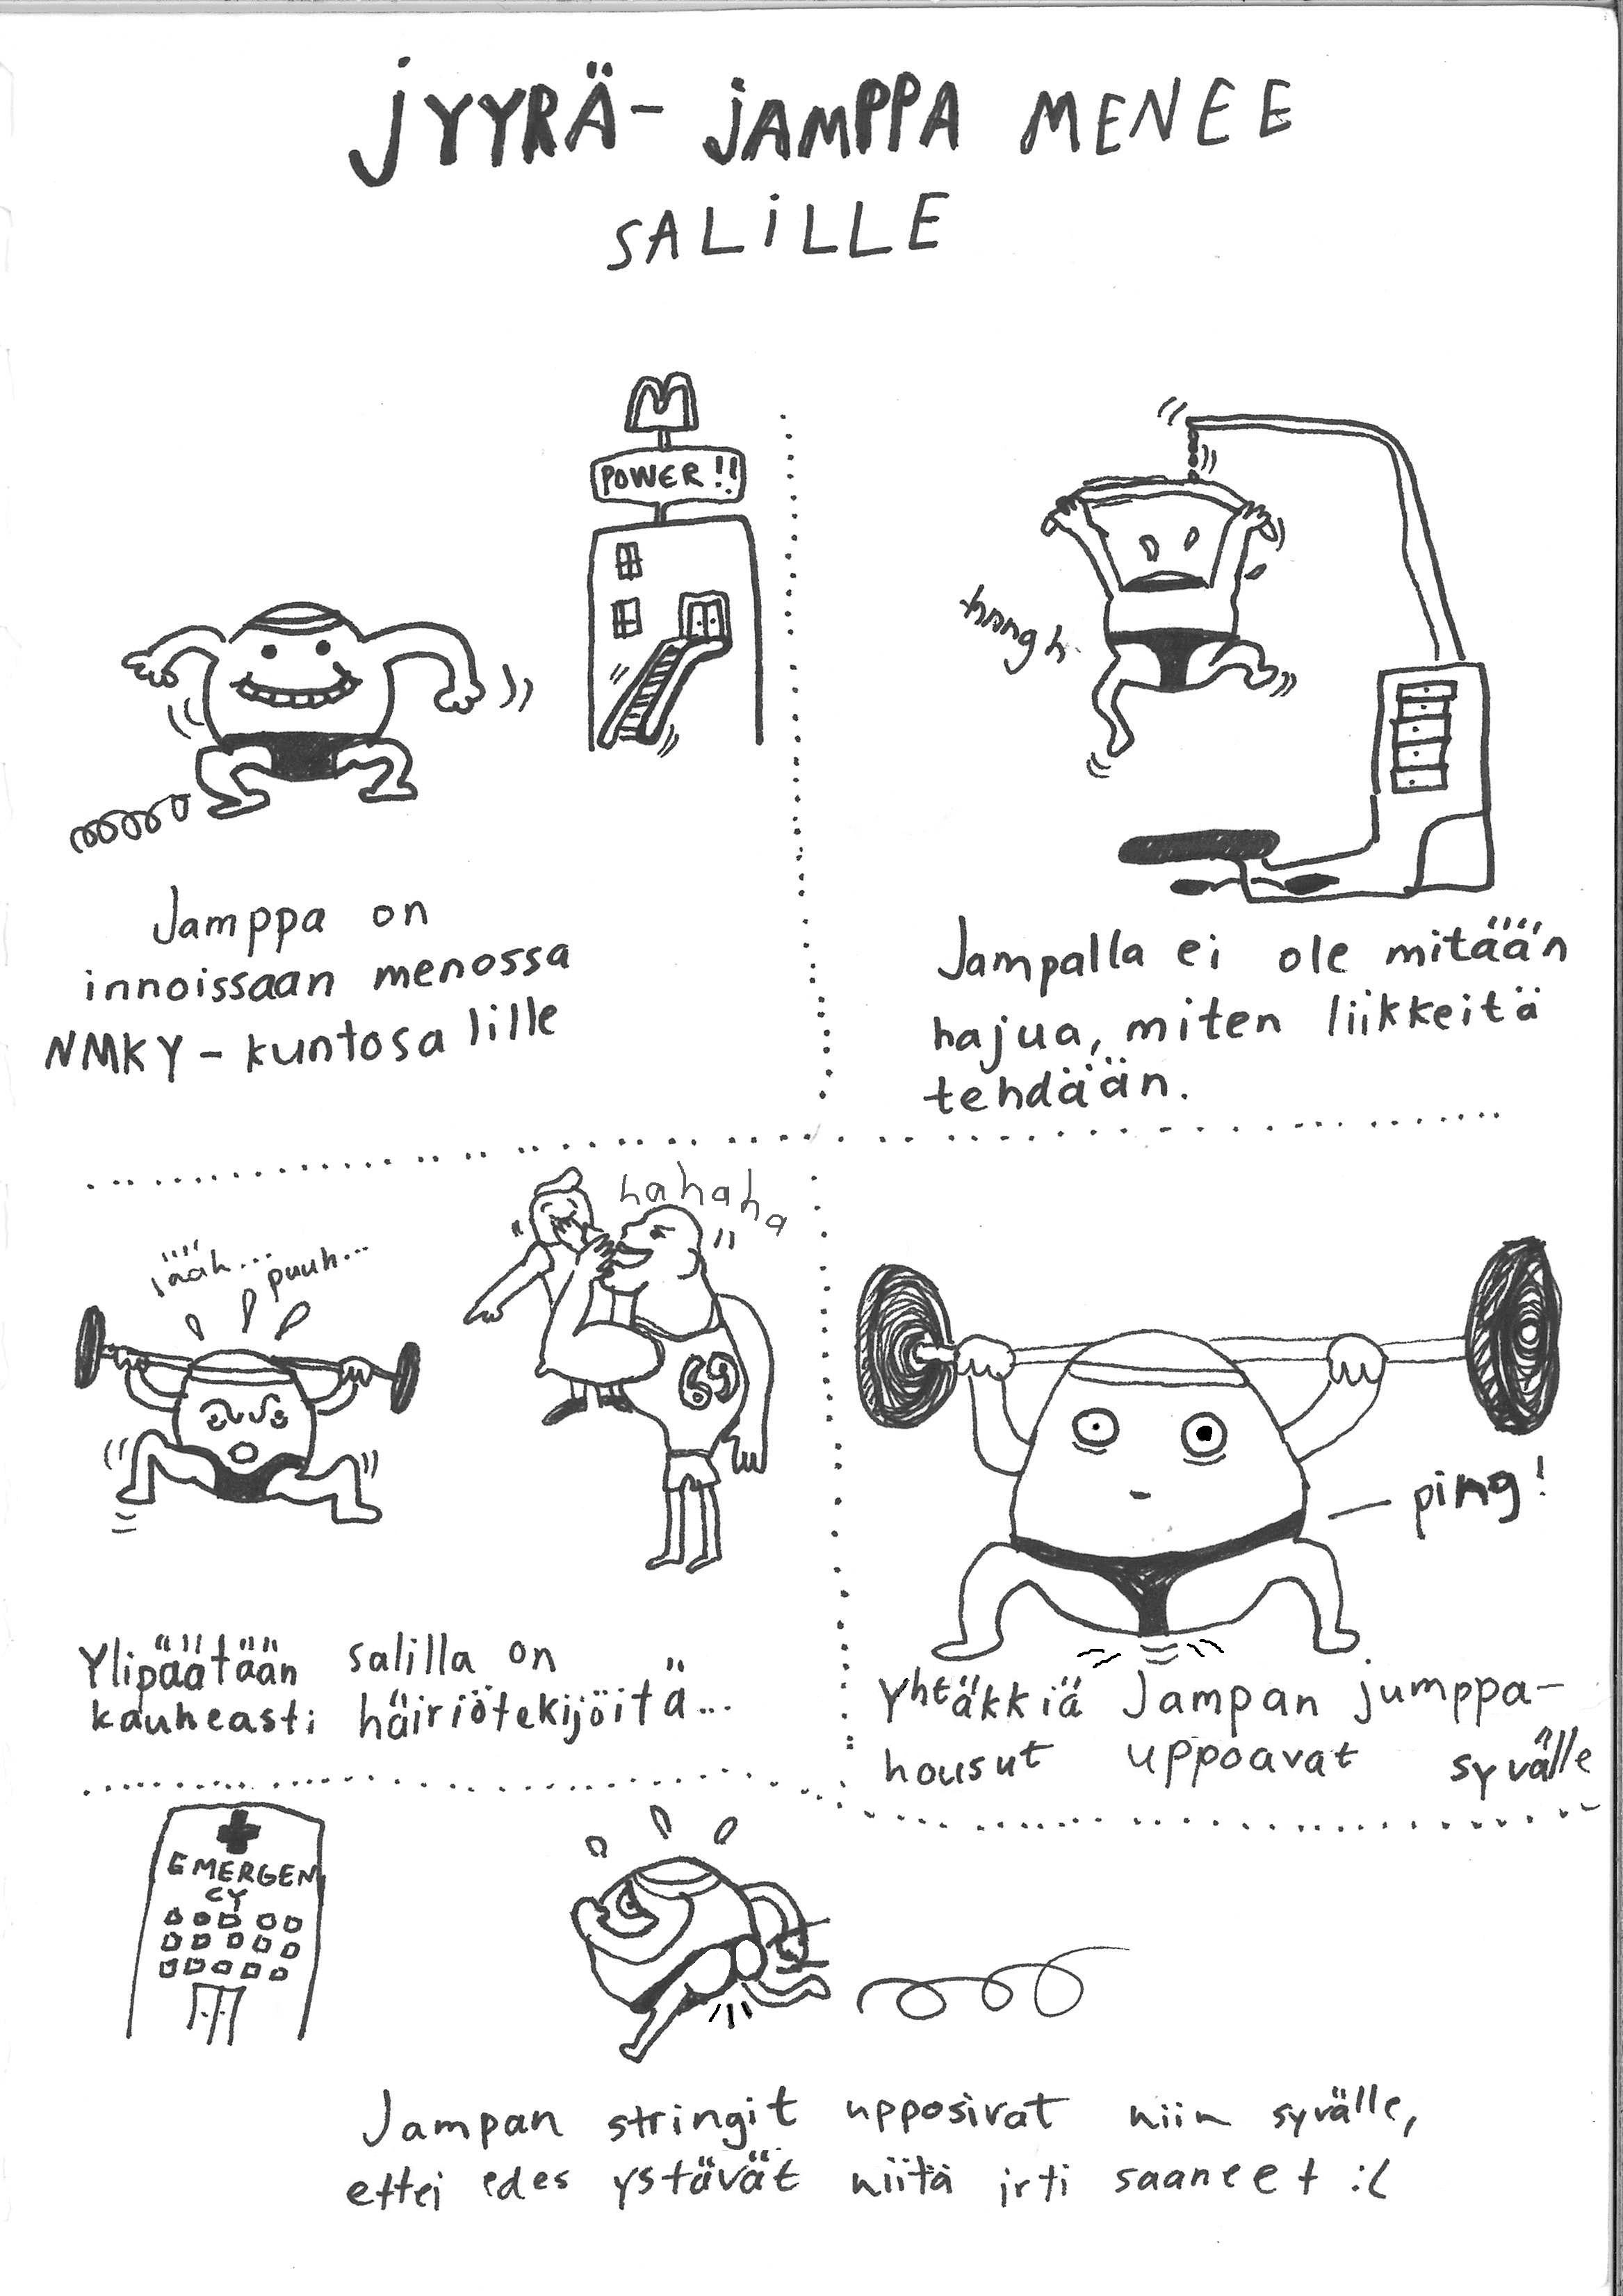 JYYRÄ-JAMPPA MENEE
SALILLE
M
POWER!!
Jamppa on
innoissaan menossa
NMKY-kuntosalille
hnngh
Jampalla ei ole mitään
hajua, miten liikkeitä
tehdään.
ääh... puuh...
hahaha
69
Ylipäätään salilla on
kauheasti häiriötekijöitä...
ping!
Yhtäkkiä Jampan jumppa-
housut uppoavat syvälle
EMERGEN
CY
Jampan stringit upposivat niin syvälle,
ettei edes ystävät niitä irti saaneet :(